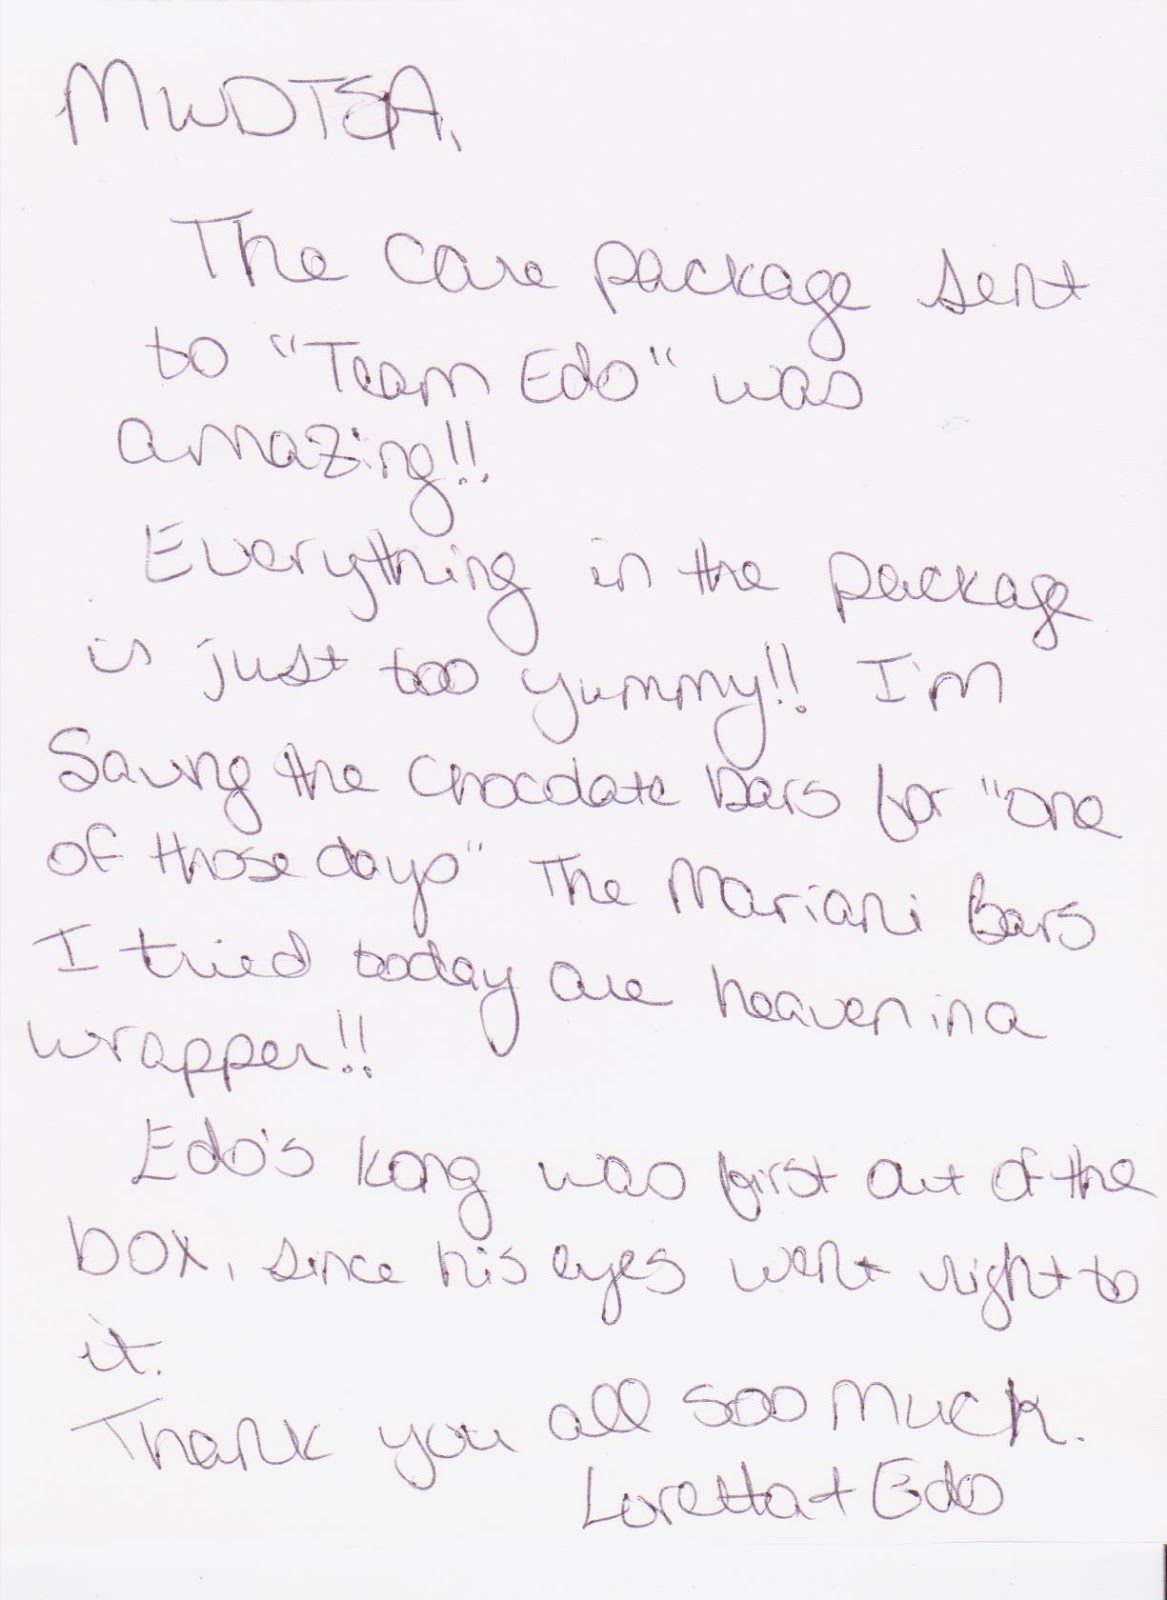 MWDTSA,
The care package sent
to "Team Edo" was
amazing!!
Everything in the package
is just too yummy!! I'm
Saving the chocolate bars for "one
of those days" The Mariani Bars
I tried today are heaven in a
wrapper!!
Edo's Kong was first out of the
box, since his eyes went right to
it.
Thank you all soo much.
Loretta + Edo